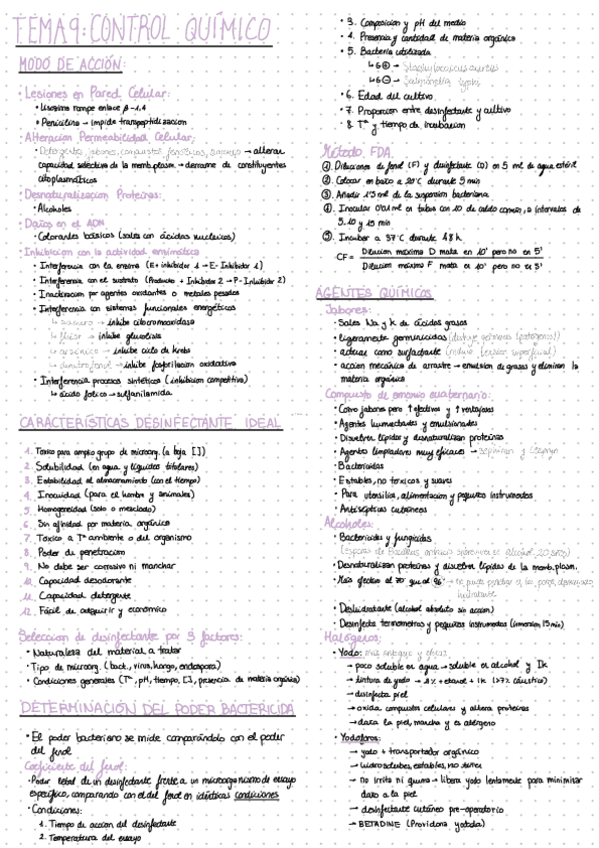 TEMA 9: CONTROL QUÍMICO
MODO DE ACCIÓN:
• Lesiones en Pared Celular:
• Lisozima rompe enlace β-1,4
• Penicilina → impide transpeptidizacion
• Alteracion Permeabilidad Celular:
• Detergentes, jabones, compuestos fenólicos, → alteran
capacidad selectiva de la memb.plasm. → derrame de constituyentes
citoplasmáticos
• Desnaturalización Proteínas:
• Alcoholes
• Daños en el ADN
• Colorantes básicos (sales con ácidos nucleicos)
• Inhibicion con la actividad enzimática
• Interferencia con la enzima (E + inhibidor 1 → E - Inhibidor 1)
• Interferencia con el sustrato (Producto + Inhibidor 2 → P - Inhibidor 2)
• Inactivacion por agentes oxidantes o metales pesados
• Interferencia con sistemas funcionales energéticos
↳ cianuro → inhibe citocromooxidasa
↳ fluor → inhibe glucolisis
↳ arsenico → inhibe ciclo de krebs
↳ dinitrofenol → inhibe fosforilacion oxidativa
• Interferencia procesos sintéticos (inhibicion competitiva)
↳ ácido folico → sulfanilamida
CARACTERÍSTICAS DESINFECTANTE IDEAL
1. Toxico para amplio grupo de microorg. (a baja [ ])
2. Solubilidad (en agua y líquidos titulares)
3. Estabilidad al almacenamiento (con el tiempo)
4. Inocuidad (para el hombre y animales)
5. Homogeneidad (solo o mezclado)
6. Sin afinidad por materia orgánica
7. Toxico a Tª ambiente o del organismo
8. Poder de penetracion
9. No debe ser corrosivo ni manchar
10. Capacidad desodorante
11. Capacidad detergente
12. Fácil de adquirir y economico
Seleccion de desinfectante por 3 factores:
• Naturaleza del material a tratar
• Tipo de microorg. (bact., virus, hongo, endospora)
• Condiciones generales (Tª, pH, tiempo, [ ], presencia de materia orgánica)
DETERMINACIÓN DEL PODER BACTERICIDA
• El poder bacteriano se mide comparándolo con el poder
del fenol
Coeficiente del fenol:
• Poder letal de un desinfectante frente a un microorganismo de ensayo
específico, comparando con el del fenol en idénticas condiciones
• Condiciones:
1. Tiempo de accion del desinfectante
2. Temperatura del ensayo
• 3. Composicion y pH del medio
• 4. Presencia y cantidad de materia orgánica
• 5. Bacteria utilizada
↳ G⊕ → Staphylococcus aureus
↳ G⊖ → Salmonella typhi
• 6. Edad del cultivo
• 7. Proporcion entre desinfectante y cultivo
• 8. Tª y tiempo de incubacion
Método FDA:
①. Diluciones de fenol (F) y desinfectante (D) en 5 ml de agua estéril
②. Colocar en baño a 20°C durante 5 min
③. Añadir de la suspension bacteriana
④. Inocular 0'01 ml en tubos con 10 de caldo comun, a intervalos de
5, 10 y 15 min
⑤. Incubar a 37°C durante 48 h
CF = Dilucion maxima D mata en 10' pero no en 5'
Dilucion maxima F mata en 10' pero no en 5'
AGENTES QUÍMICOS
Jabones:
• Sales Na y K de ácidos grasos
• ligeramente germinicidas (destruye gérmenes (patógenos))
• actuar como surfactante (reduce tension superficial)
• accion mecánica de arrastre → emulsion de grasas y eliminan la
materia orgánica
Compuesto de amonio cuaternario:
• Como jabones pero ↑ efectivos y ↑ ventajosos
• Agentes humectantes y emulsionantes
• Disuelven lípidos y desnaturalizan proteínas
• Agentes limpiadores muy eficaces →
• Bactericidas
• Estables, no toxicos y suaves
• Para utensilios, alimentacion y pequeños instrumentos
• Antisépticos cutáneos
Alcoholes:
• Bactericidas y fungicidas
(esporas de Bacillus anthracis sobreviven en alcohol 20 años)
• Desnaturalizan proteínas y disuelven lípidos de la memb.plasm.
• Más efectivo al 70° que al 96° → no puede penetrar en los poros, demasiado
hidratante
• Deshidratante (alcohol absoluto sin accion)
• Desinfecta termometros y pequeños instrumentos (inmersion, 15 min)
Halogenos:
• Yodo: más antiguo y eficaz
→ poco soluble en agua → soluble en alcohol y IK
→ tintura de yodo → 2% + etanol + IK (>7% cáustico)
→ desinfecta piel
→ oxida compuestos celulares y altera proteínas
→ daña la piel, mancha y es alérgeno
• Yodoforos:
→ yodo + transportador orgánico
→ hidrosolubles, estables, no tiñen
→ no irrita ni quema → libera yodo lentamente para minimizar
daño a la piel
→ desinfectante cutáneo pre-operatorio
→ BETADINE (Providona yodada)